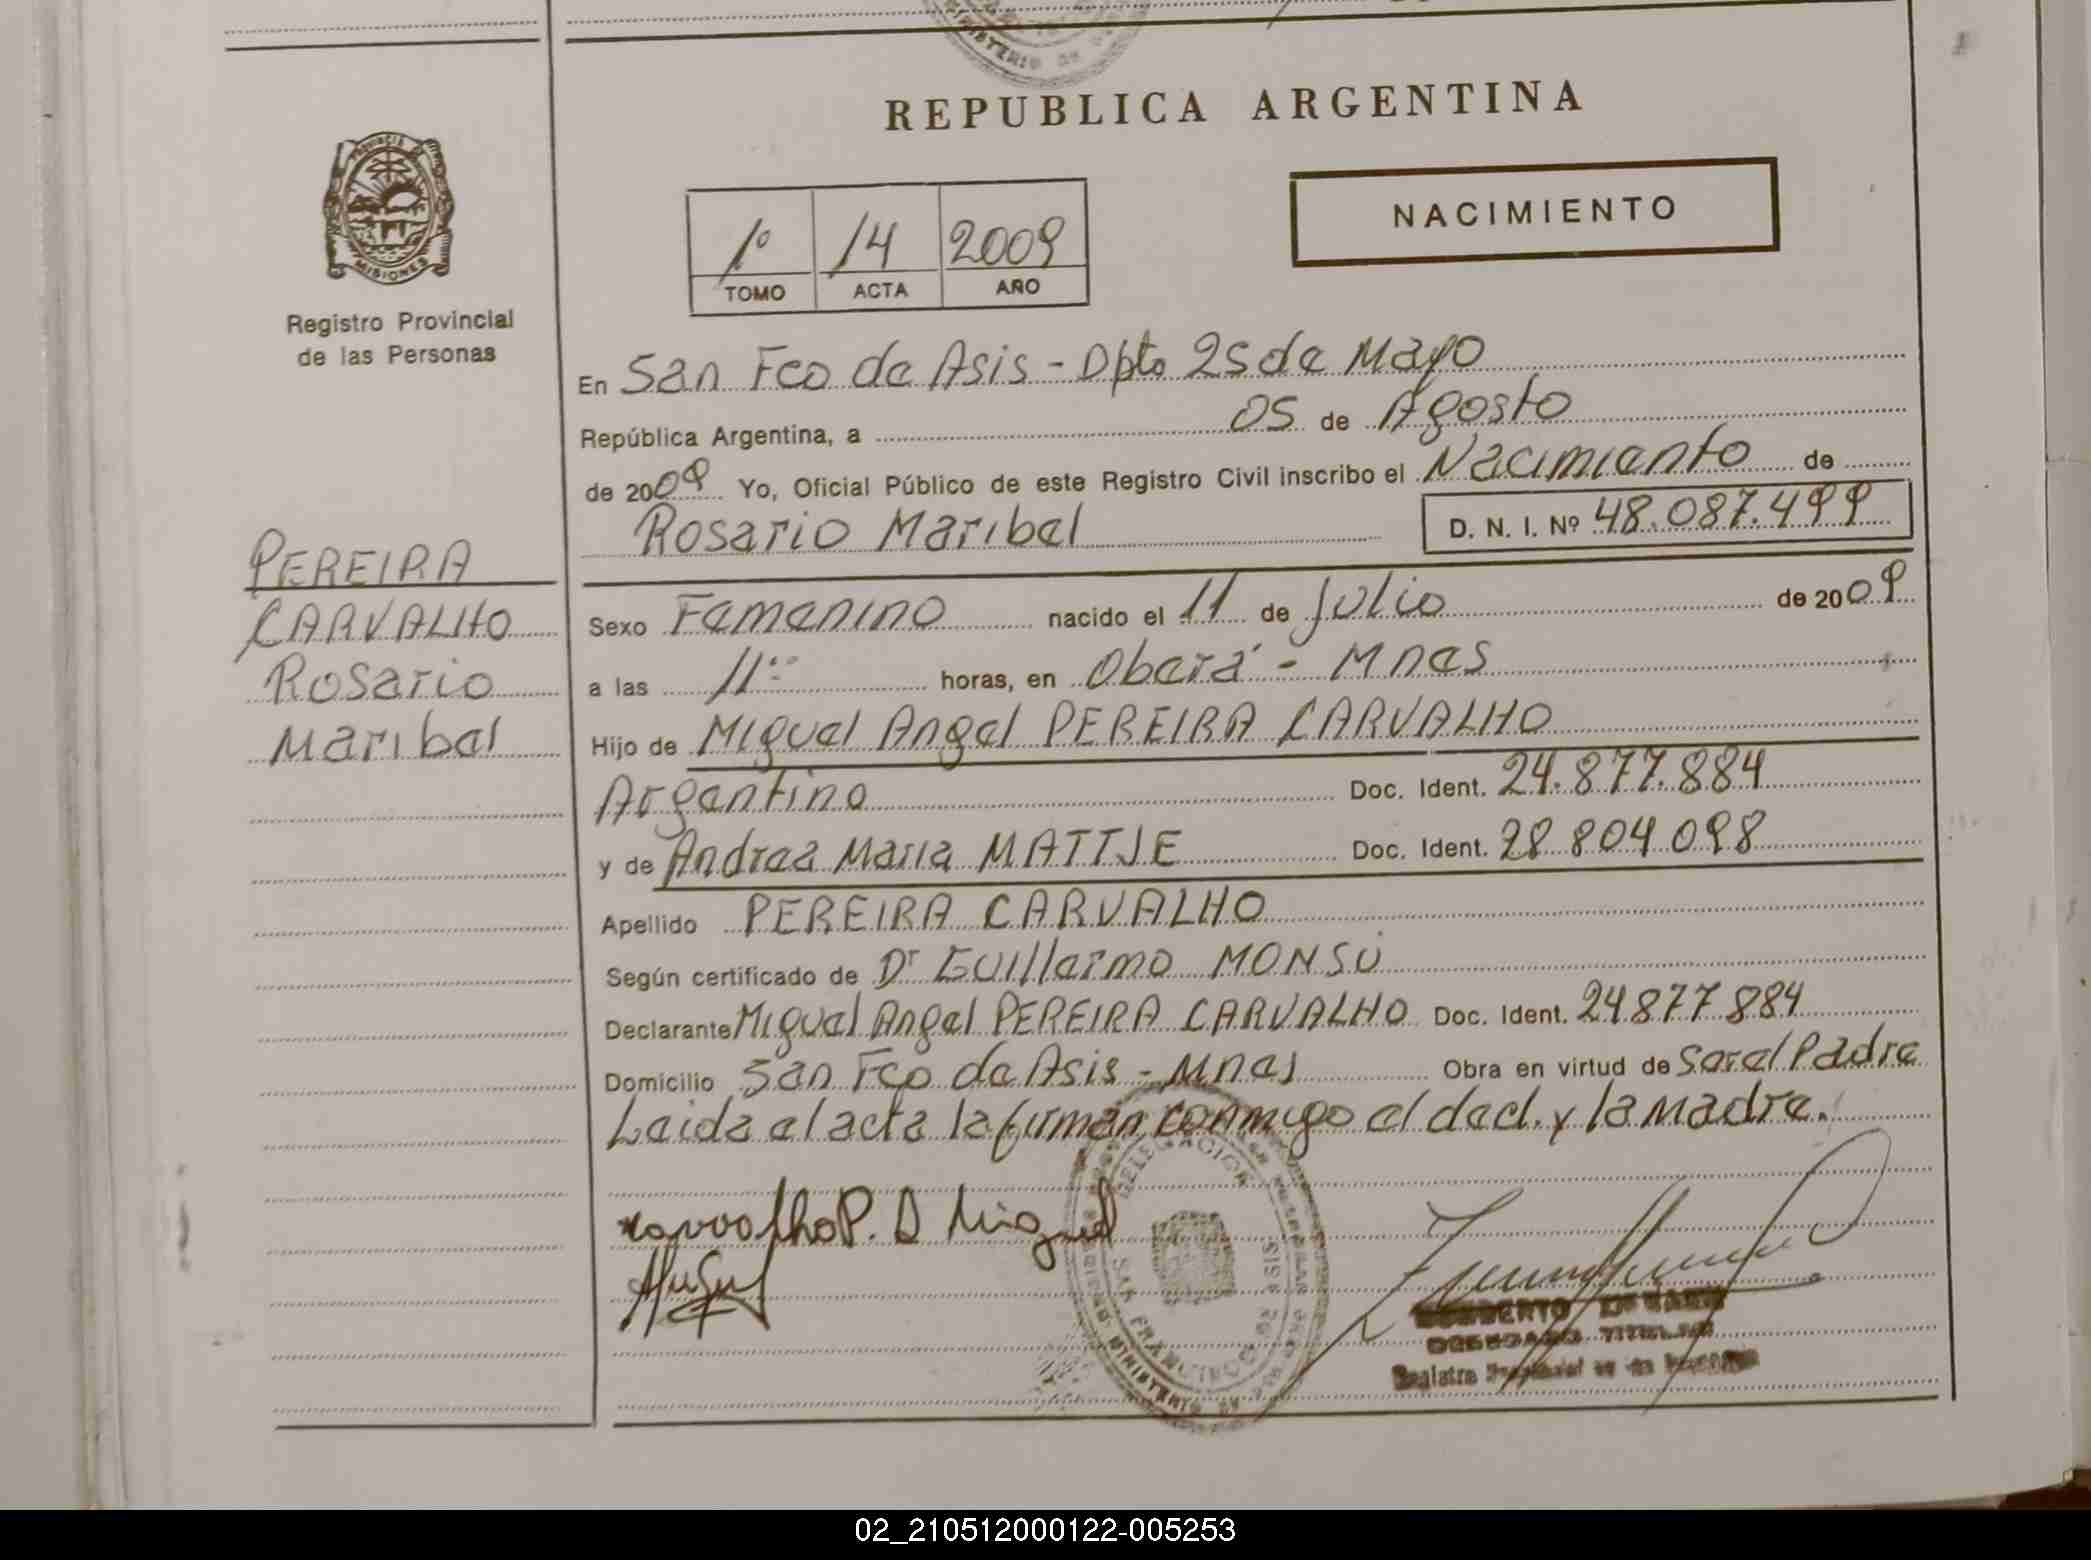 REPUBLICA ARGENTINA
PROVINCIA DE
MISIONES
Registro Provincial
de las Personas
NACIMIENTO
1º 14 2009
TOMO ACTA AÑO
En San Fco de Asis - Dpto 25 de Mayo
República Argentina, a 05 de Agosto
de 2009 Yo, Oficial Público de este Registro Civil inscribo el Nacimiento de
Rosario Maribel D. N. I. Nº 48.087.499
PEREIRA
CARVALHO
Rosario
Maribel
Sexo Femenino nacido el 11 de Julio de 2009
a las 11:00 horas, en Oberá - Mnes
Hijo de Miguel Angel PEREIRA CARVALHO
Argentino Doc. Ident. 24.877.884
y de Andrea Maria MATTJE Doc. Ident. 28 804 098
Apellido PEREIRA CARVALHO
Según certificado de Dr Guillermo MONSÚ
Declarante Miguel Angel PEREIRA CARVALHO Doc. Ident. 24877884
Domicilio San Fco de Asis - Mnes Obra en virtud de Ser el Padre
Leida el acta la firman conmigo el decl. y la Madre.
Carvalho P. A Miguel
DELEGACION
SAN FRANCISCO DE ASIS
MINISTERIO DE
TITULAR
Registro Provincial de las Personas
02_210512000122-005253